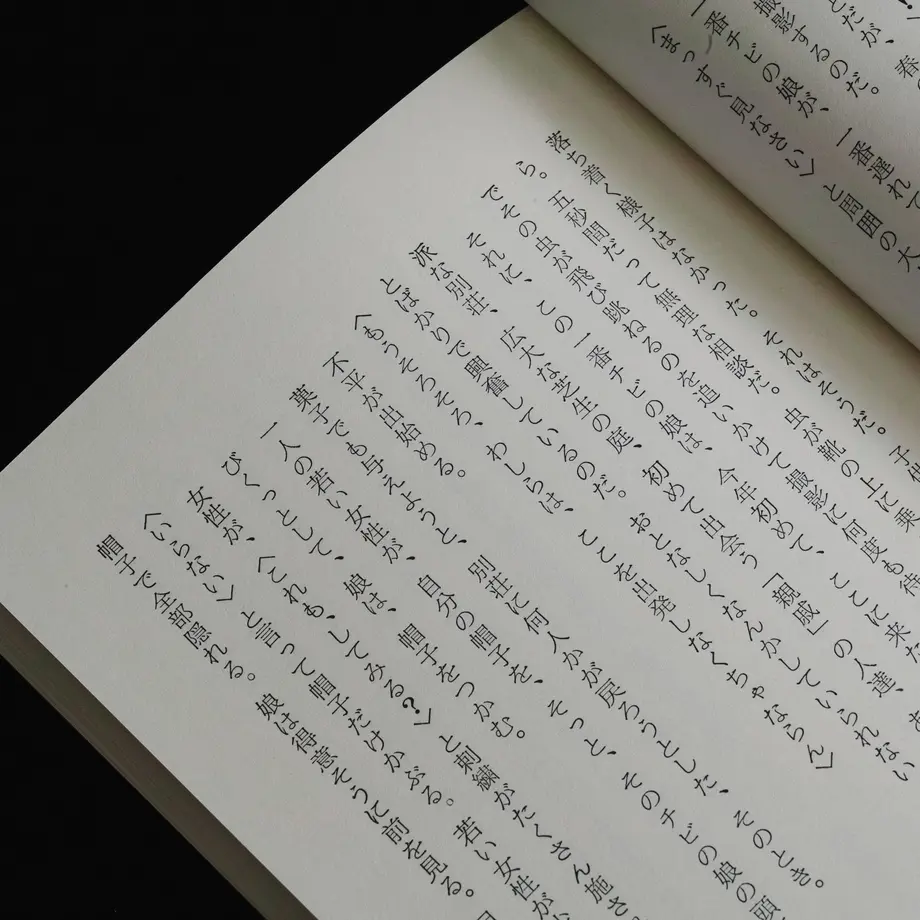 春の
とだが、
撮影するのだ。
一番チビの娘が、一番遅れて
〈まっすぐ見なさい〉と周囲の大
落ち着く様子はなかった。それはそうだ。子
ら。五秒間だって無理な相談だ。虫が靴の上に乗
でその虫が飛び跳ねるのを追いかけて撮影に何度も待
それに、この一番チビの娘は、今年初めて、ここに来た
派な別荘、広大な芝生の庭、初めて出会う「親戚」の人達、
とばかりで興奮しているのだ。おとなしくなんかしていられない
〈もうそろそろ、わしらは、ここを出発しなくちゃならん〉
不平が出始める。
菓子でも与えようと、別荘に何人かが戻ろうとした、そのとき。
一人の若い女性が、自分の帽子を、そっと、そのチビの娘の頭
びくっとして、娘は、帽子をつかむ。
女性が、〈これも、してみる？〉と刺繍がたくさん施さ
〈いらない〉と言って帽子だけかぶる。若い女性が
帽子で全部隠れる。娘は得意そうに前を見る。